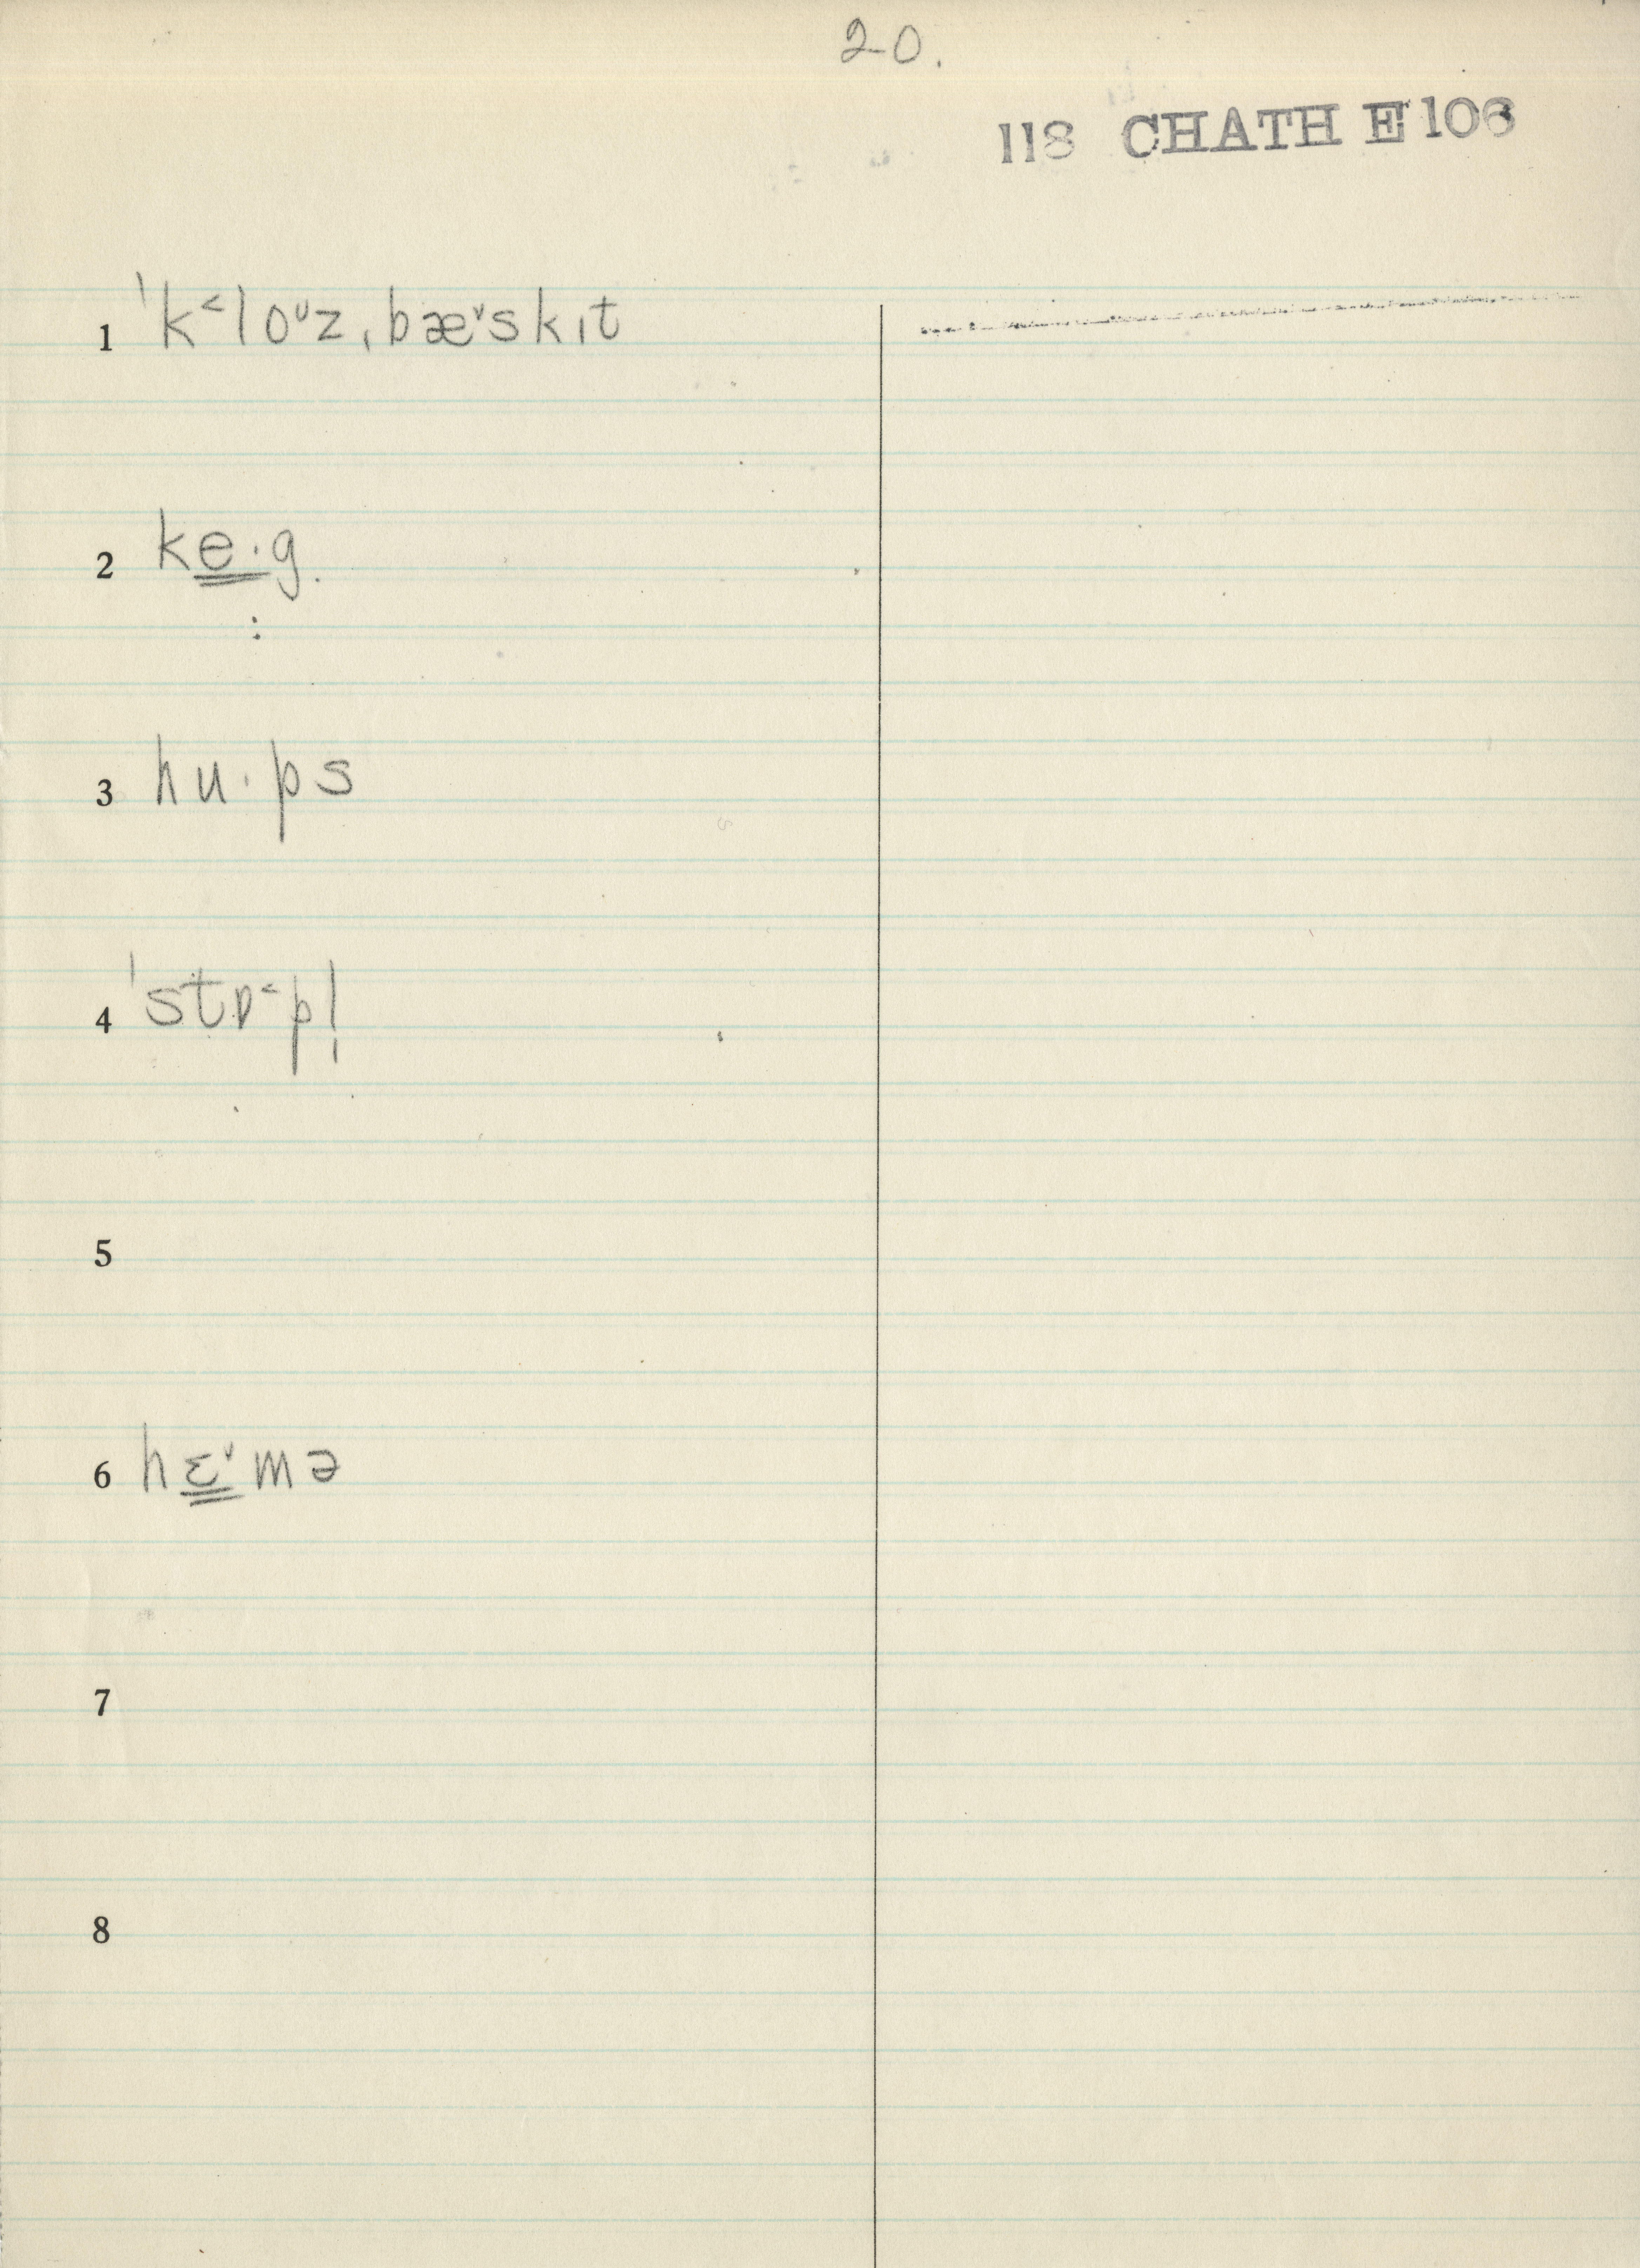 20.
118 CHATH E106
1 ˈk˂loᴜz ˌbæ˅skɪt
2 ke·g.
3 hu·ps
4 ˈstɒ˂pl̩
5
6 hɛ˅mə
7
8